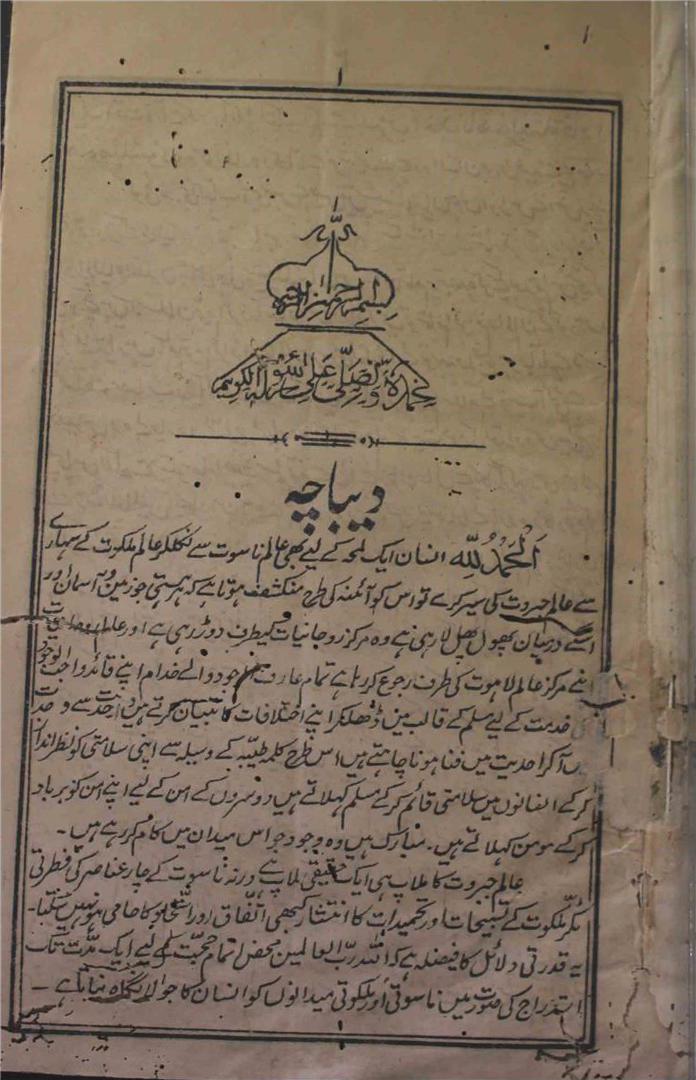 ۱
۱
بسم اللہ الرحمن الرحیم
نحمدہ و نصلی علی رسولہ الکریم
دیباچہ
الحمد للہ انسان ایک لمحہ کے لیے بھی عالم ناسوت سے نکلکر عالم ملکوت کے سہارے
سے عالم جبروت کی سیر کرے تو اس کو آئنہ کی طرح منکشف ہوتا ہے کہ ہر ہستی جو زمین و آسمان اور
اسکے درمیان پھول پھل لا رہی ہے وہ مرکز روحانیات کیطرف دوڑ رہی ہے اور عالم
اپنے مرکز عالم لاہوت کی طرف رجوع کر رہا ہے تمام عارف وجود والے خدام اپنے قائد واجب الوجود
کی خدمت کے لیے مسلم کے قالب میں ڈھلکر اپنے اختلافات کا بیان کرتے ہیں سے وحدت
میں آکر احدیت میں فنا ہونا چاہتے ہیں اس طرح کلمہ طیبہ کے وسیلہ سے اپنی سلامتی کو نظر انداز
کر کے انسانوں میں سلامتی قائم کر کے مسلم کہلاتے ہیں دوسروں کے امن کے لیے اپنے امن کو برباد
کر کے مومن کہلاتے ہیں۔ مبارک ہیں وہ وجود جو اس میدان میں کام کر رہے ہیں۔
عالم جبروت کا ملاپ ہی ایک حقیقی ملاپ ہے ورنہ ناسوت کے چار عناصر کی فطرتی
ٹکر ملکوت کے تسبیحات اور تحمیدات کا انتشار کبھی اتفاق اور اتحاد کا حامی ہو نہیں سکتا۔
یہ قدرتی دلائل کا فیصلہ ہے کہ اللہ رب العالمین محض اتمام حجت کے لیے ایک مدت تک
استدراج کی صورت میں ناسوتی اور ملکوتی میدانوں کو انسان کا جولانگاہ بناتا ہے۔
۱